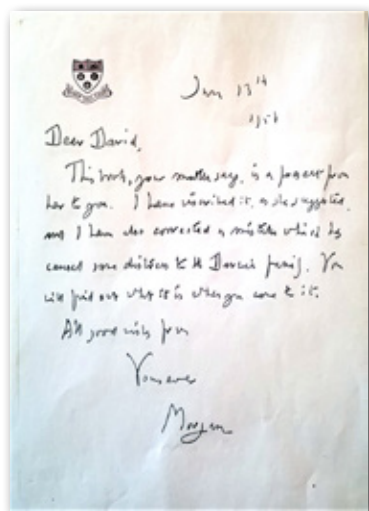 Jan 13th
1956
Dear David,
This book, your mother says, is a present from
her to you. I have inscribed it, as she suggested,
and I have also corrected a mistake which has
caused some distress to the Darwin family. You
will find out what it is when you come to it.
All good wishes from
Yours ever
Morgan